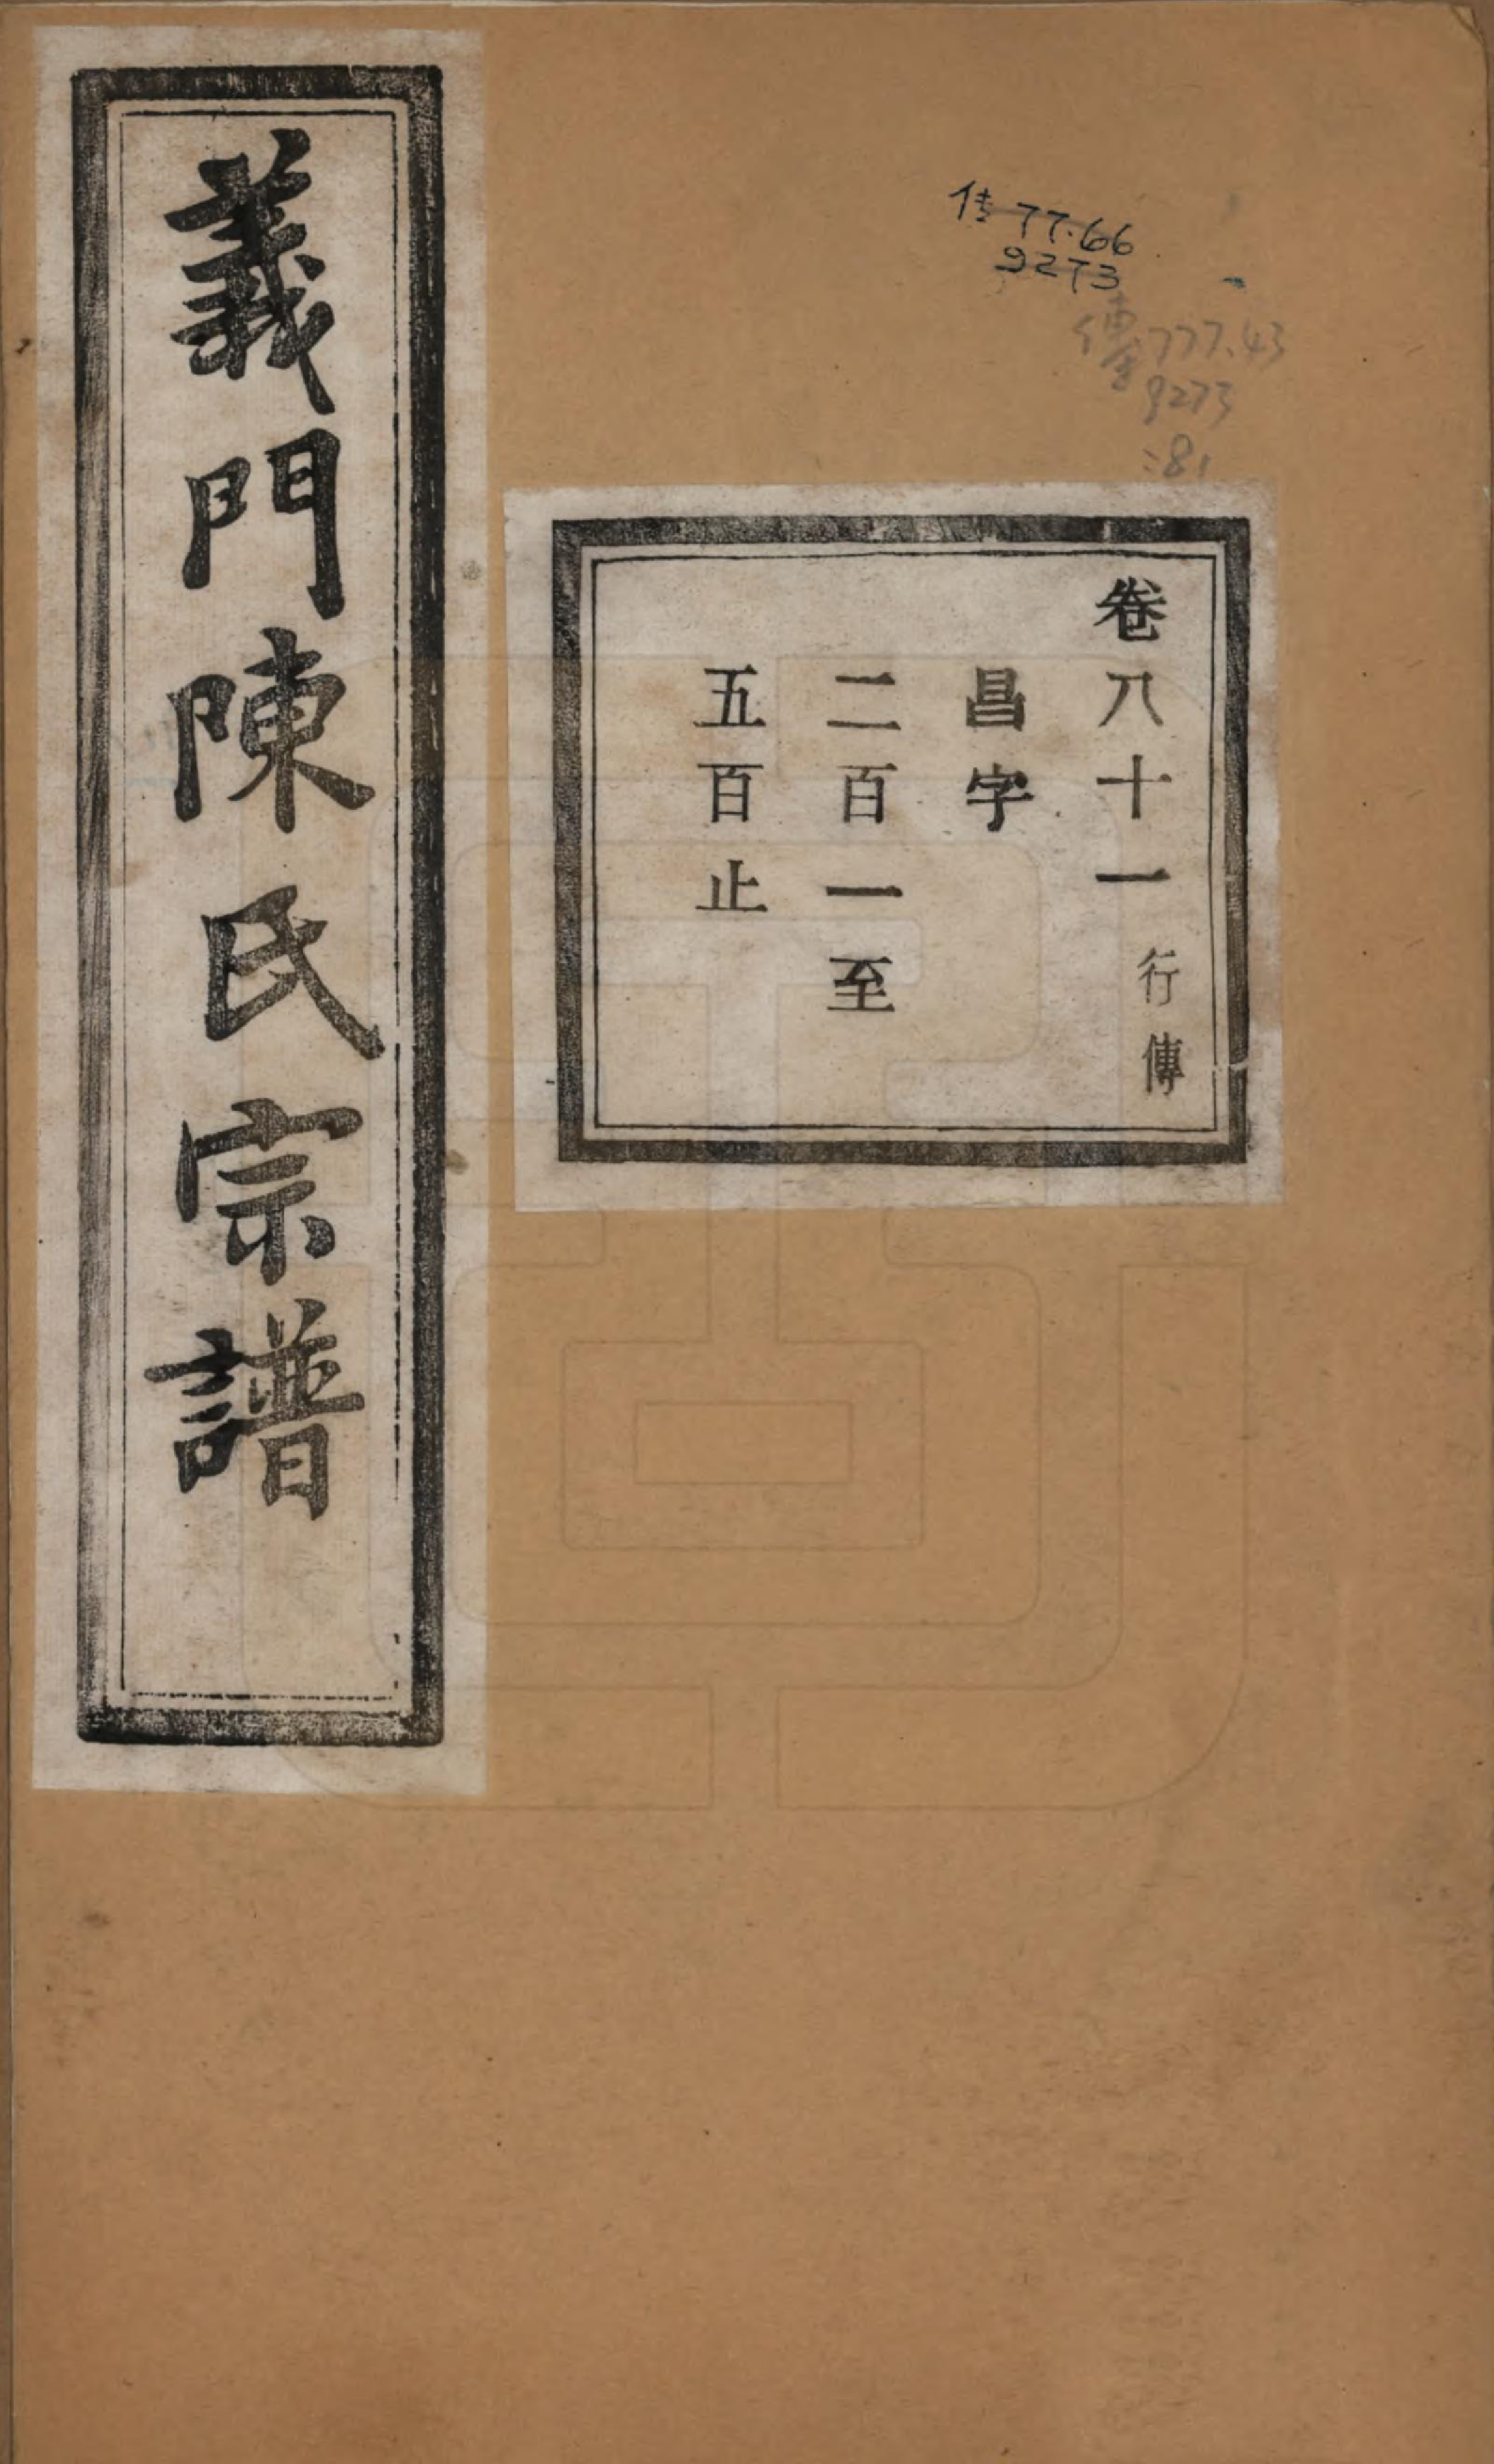 義門陳氏宗譜
传 77.66
9273
傳 777.43
9273
:81
卷八十一 行傳
昌字
二百一至
五百止